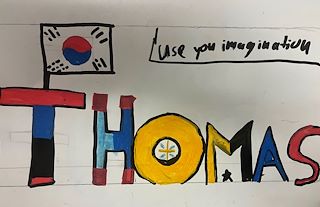 use you imagination
THOMAS